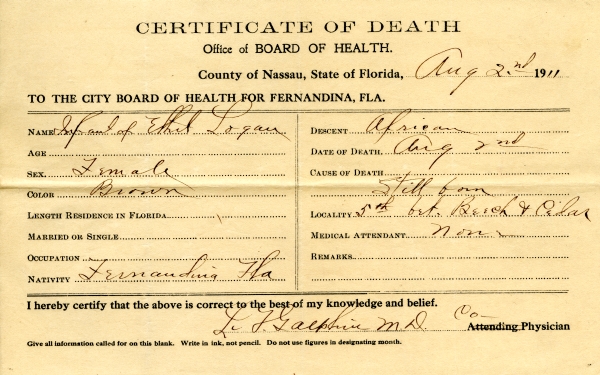 CERTIFICATE OF DEATH
Office of BOARD OF HEALTH.
County of Nassau, State of Florida, Aug 2nd 1911
TO THE CITY BOARD OF HEALTH FOR FERNANDINA, FLA.
NAME Infant of Ethel Logan
AGE
SEX. Female
COLOR Brown
LENGTH RESIDENCE IN FLORIDA
MARRIED OR SINGLE
OCCUPATION
NATIVITY Fernandina Fla
DESCENT African
DATE OF DEATH. Aug 2nd
CAUSE OF DEATH
Still born
LOCALITY 5th bet. Beech & Cedar
MEDICAL ATTENDANT None
REMARKS
I hereby certify that the above is correct to the best of my knowledge and belief.
Galphin M.D. Co Attending Physician
Give all information called for on this blank. Write in ink, not pencil. Do not use figures in designating month.